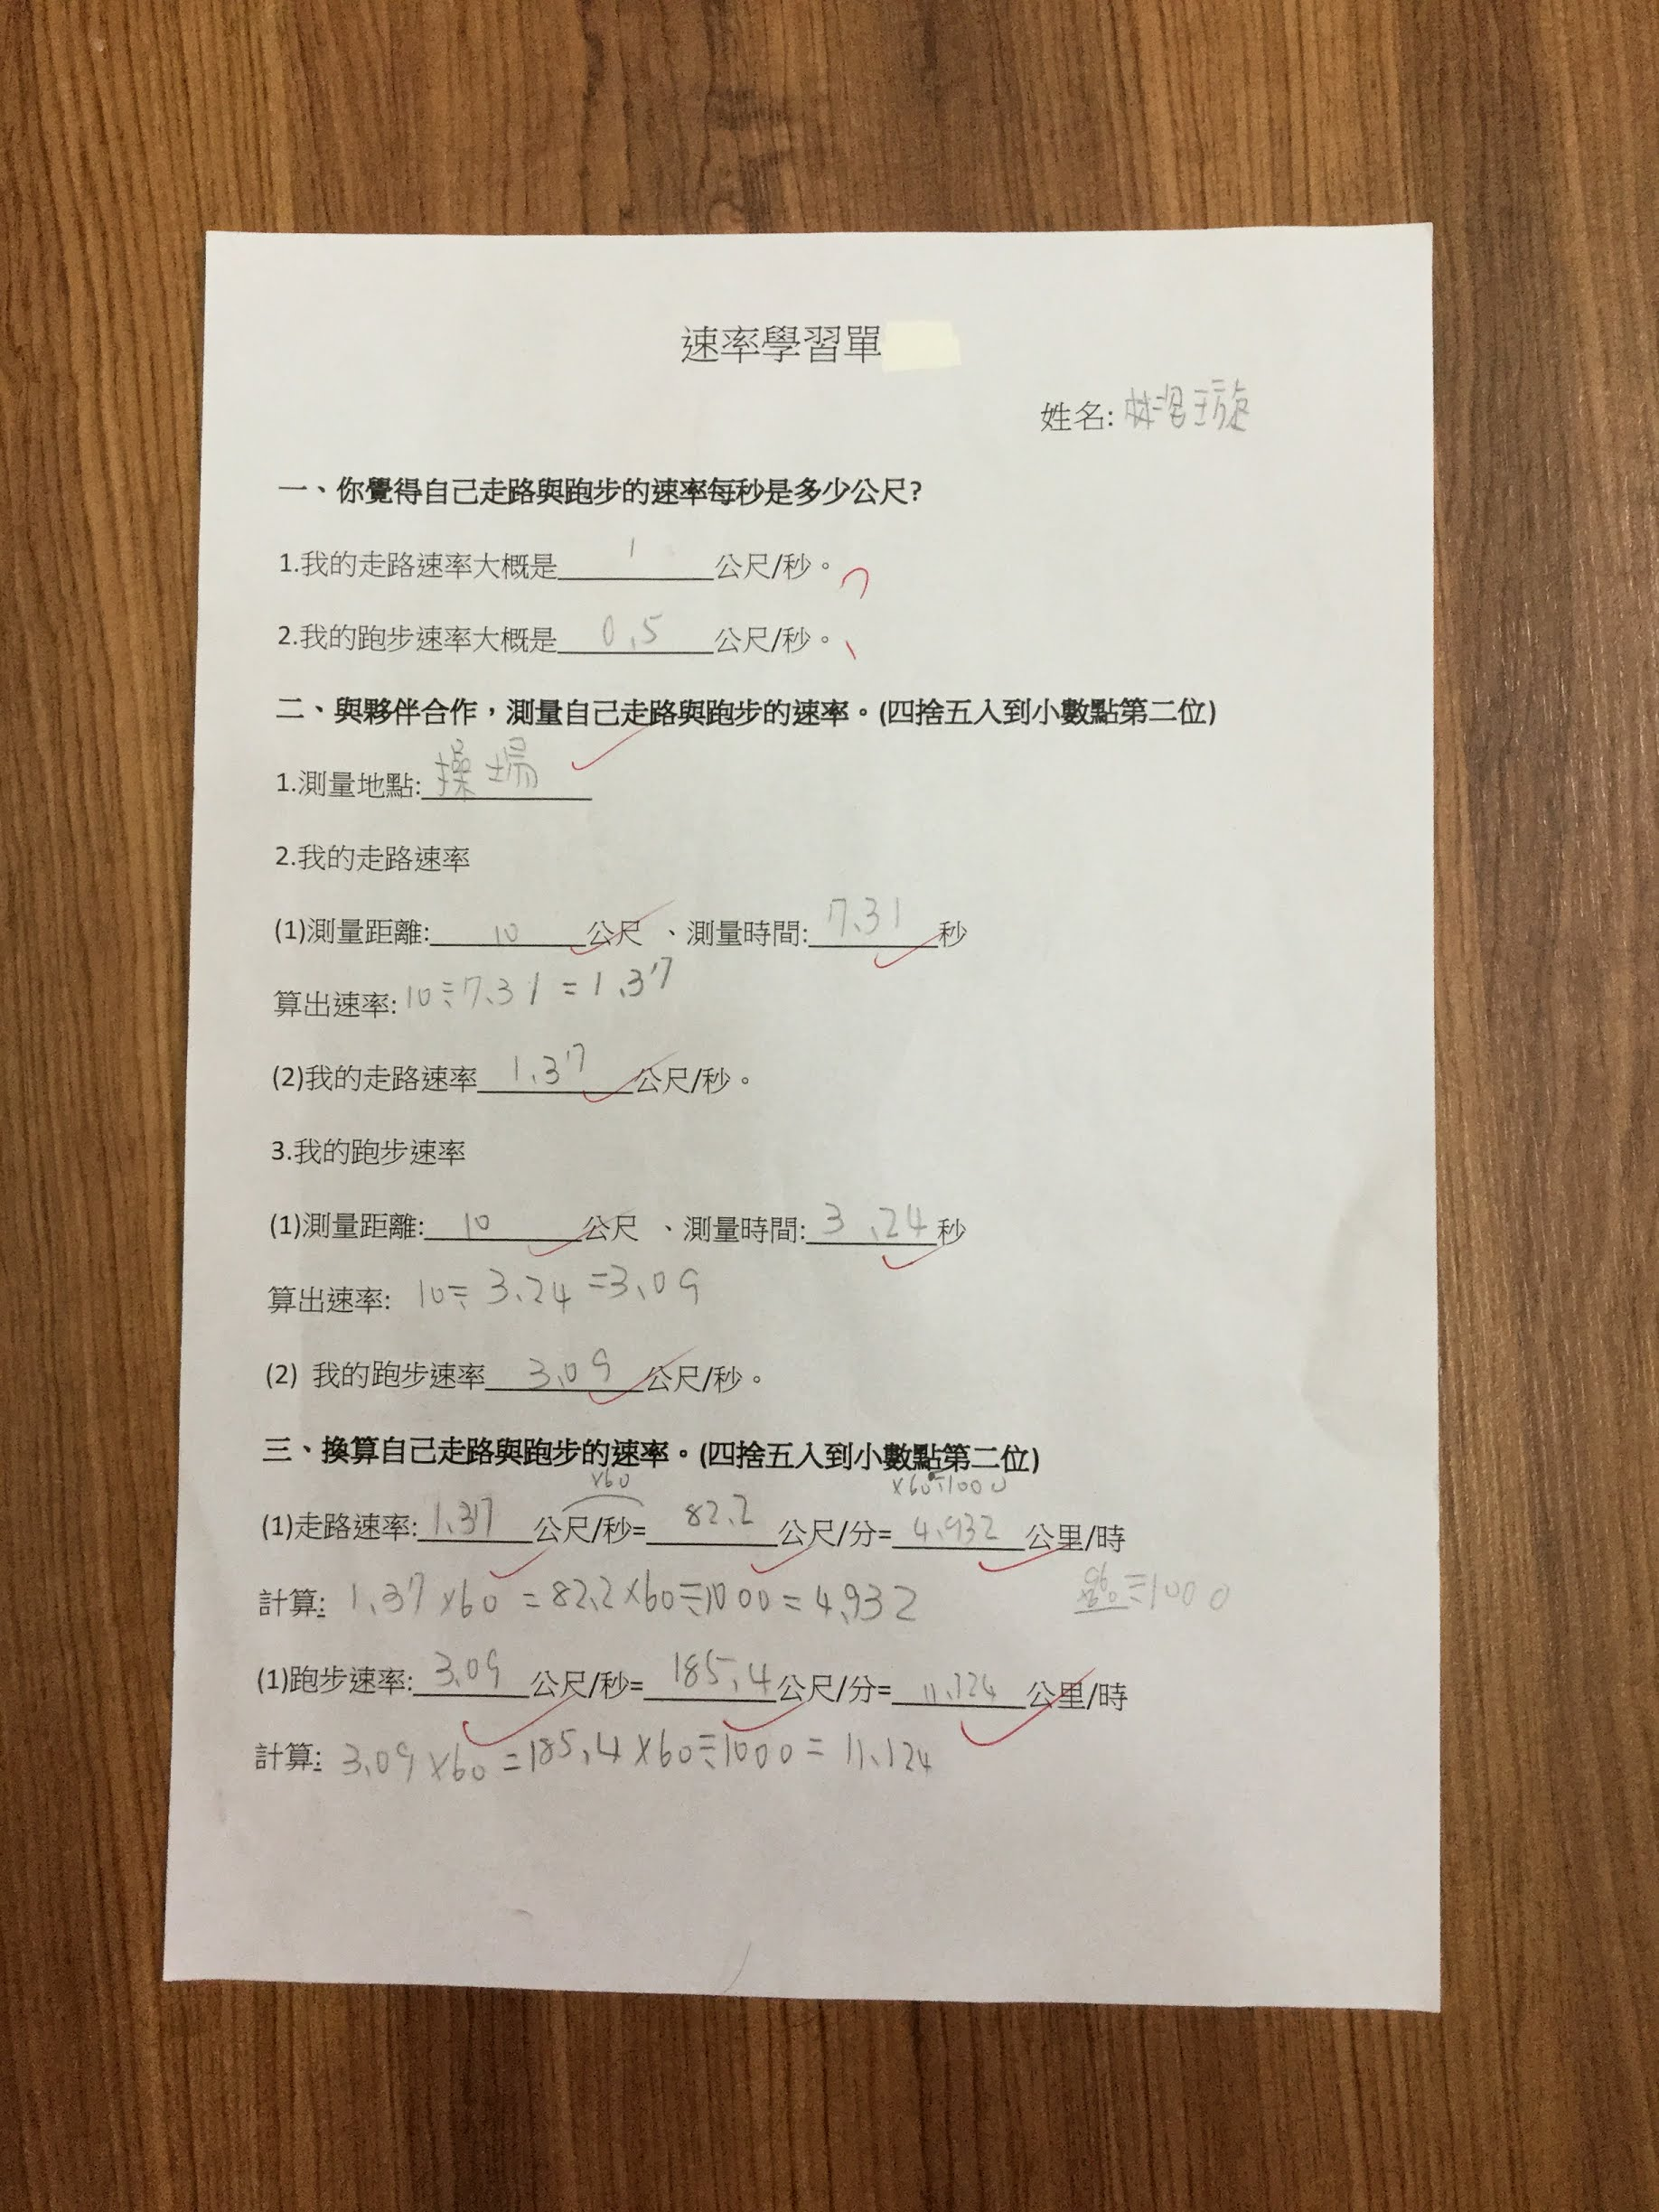 速率學習單
姓名: 林湘璇
一、你覺得自己走路與跑步的速率每秒是多少公尺?
1.我的走路速率大概是 1 公尺/秒。
2.我的跑步速率大概是 0.5 公尺/秒。
二、與夥伴合作，測量自己走路與跑步的速率。(四捨五入到小數點第二位)
1.測量地點: 操場
2.我的走路速率
(1)測量距離: 10 公尺 、測量時間: 7.31 秒
算出速率: 10÷7.31=1.37
(2)我的走路速率 1.37 公尺/秒。
3.我的跑步速率
(1)測量距離: 10 公尺 、測量時間: 3.24 秒
算出速率: 10÷3.24=3.09
(2) 我的跑步速率 3.09 公尺/秒。
三、換算自己走路與跑步的速率。(四捨五入到小數點第二位)
×60 ×60÷1000
(1)走路速率: 1.37 公尺/秒= 82.2 公尺/分= 4.932 公里/時
計算: 1.37×60=82.2×60÷1000=4.932 ÷1000
(1)跑步速率: 3.09 公尺/秒= 185.4 公尺/分= 11.124 公里/時
計算: 3.09×60=185.4×60÷1000=11.124